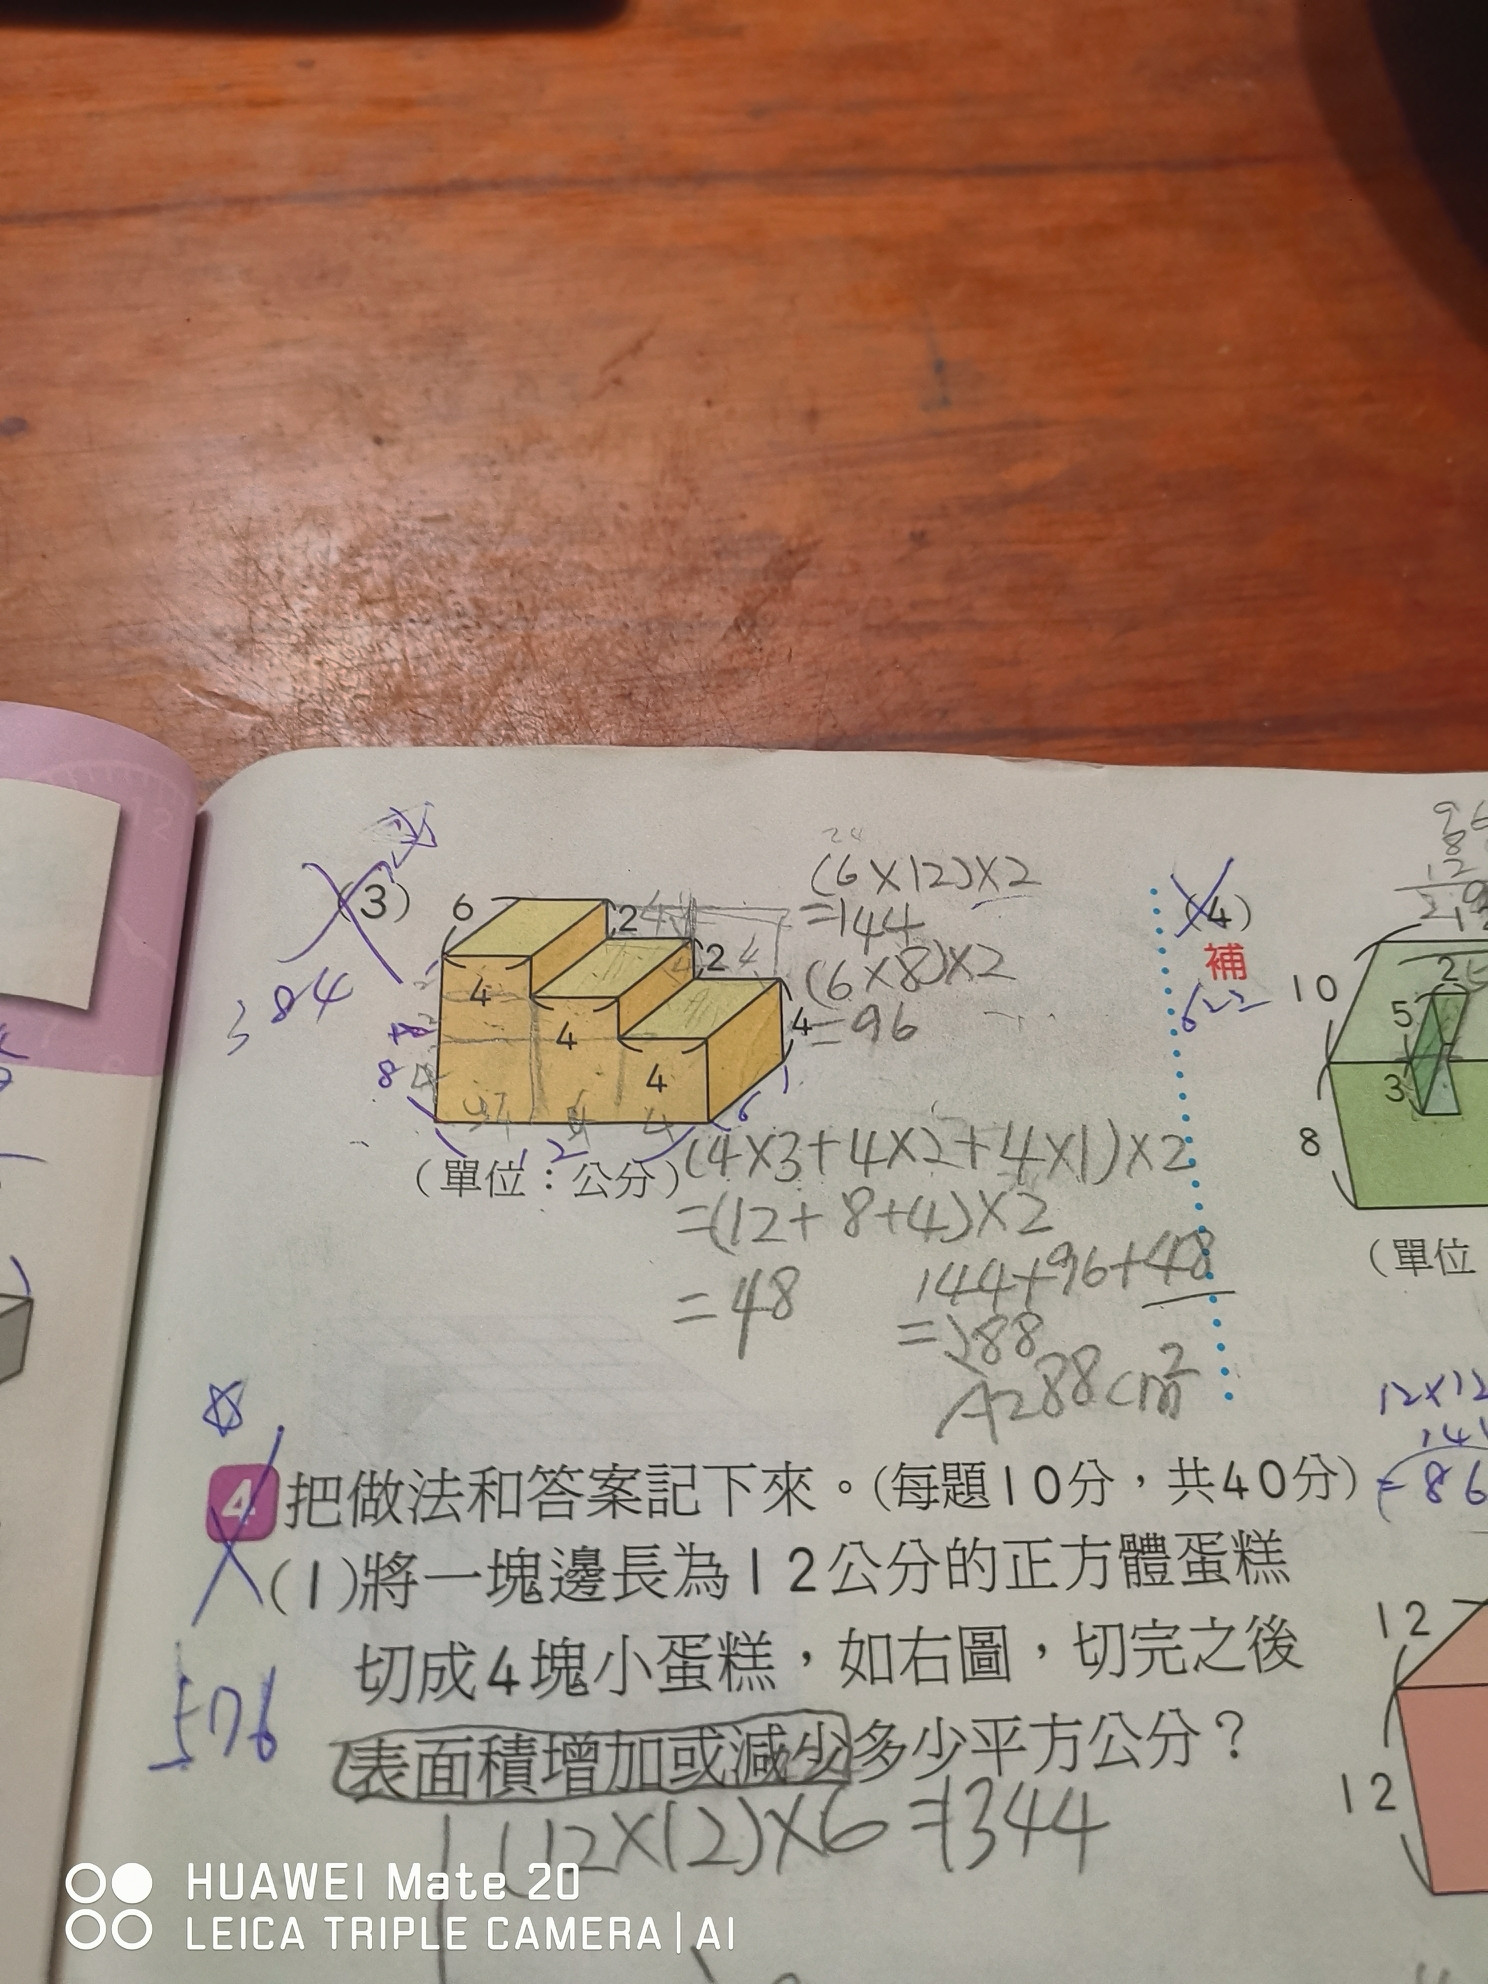 (3)
384
6
2
2
4
4
4
4
8
12
6
(單位：公分)
(6×12)×2
=144
(6×8)×2
=96
(4×3+4×2+4×1)×2
=(12+8+4)×2
=48
144+96+48
=288
A288cm²
(4)
補
622
10
2
5
3
8
(單位
12×12
=86
4 把做法和答案記下來。(每題10分，共40分)
(1)將一塊邊長為12公分的正方體蛋糕
切成4塊小蛋糕，如右圖，切完之後
表面積增加或減少多少平方公分？
576
(12×12)×6=1344
12
12
HUAWEI Mate 20
LEICA TRIPLE CAMERA | AI